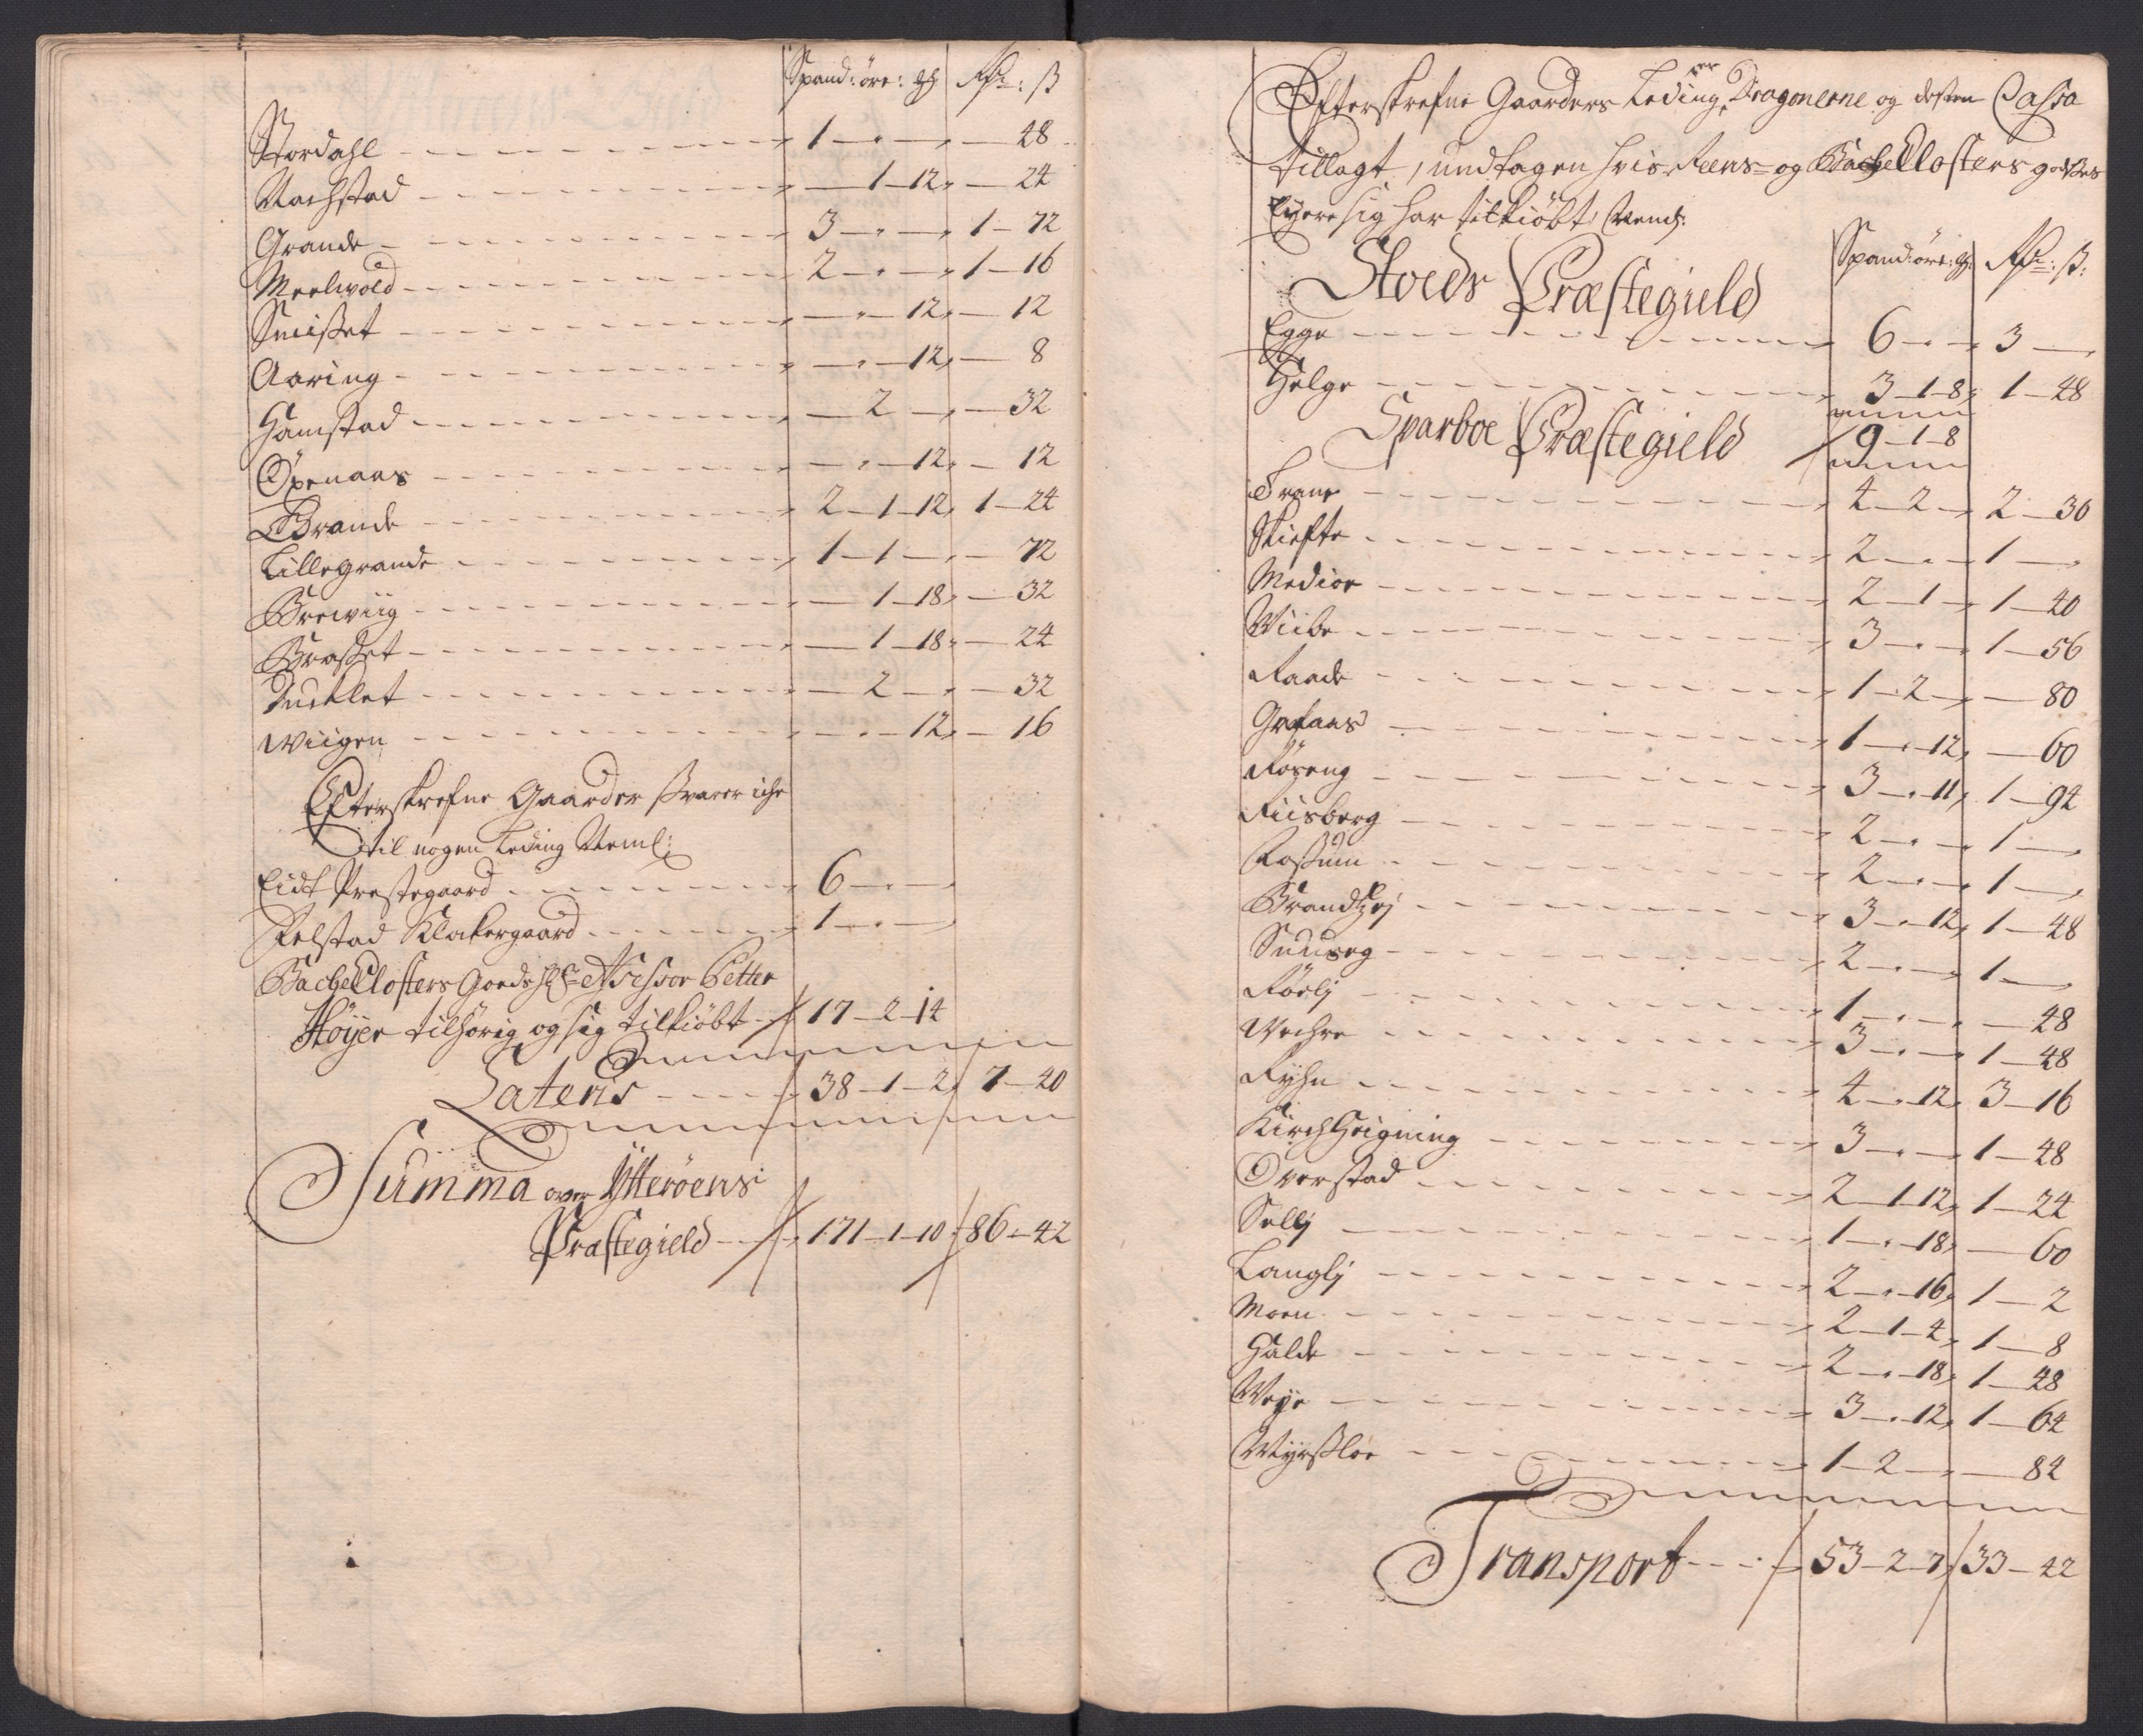 Spand: öre: g Rdr: ß
Stordahl - - - 1 - „ - „ — 48
Nachstad - - - — 1 - 12 — 24
Grande - - - 3 - „ - „ 1 - 72
Meelwold - - - 2 - „ - „ 1 - 16
Smißet - - - — „ - 12 — 12
Aaring - - - — „ - 12 — 8
Hamstad - - - — 2 - „ — 32
Oxenaas - - - — „ - 12 — 12
Brande - - - 2 - 1 - 12 1 - 24
Lillegrande - - - 1 - 1 - „ — 72
Brewiig - - - — 1 - 18 — 32
Braßet - - - — 1 - 18 — 24
Duehlet - - - — 2 - „ — 32
Wiigen - - - — „ - 12 — 16
Efterskrefne Gaarder svarer iche
til nogen Leding Neml:
Eidt Prestegaard - - - 6 - „ -
Relstad Klokergaard - - - 1 - „ -
BacheClosters Goeds hr Assessor Petter
Höyer tilhörig og sig tilkiöbt - 17 - 2 - 14
Lateris - - - 38 - 1 - 2 7 - 40
Summa over Ytteröens
Præstegield - - - 171 - 1 - 10 86 - 42
Efterskrefne Gaarders Leding er Dragonerne og desten Cassa
tillagt, undtagen hvis Reens- og BacheClosters godtzes
Eyere sig har tilkiöbt, Neml:
Spand: öre: g: Rdr: ß:
Stoeds Præstegield
Egge - - - 6 - „ - „ 3 —
Helge - - - 3 - 1 - 8 1 - 48
9 - 1 - 8
Sparboe Præstegield
Trane - - - 4 - 2 - „ 2 - 30
Skiefte - - - 2 - „ - „ 1 —
Medioe - - - 2 - 1 - „ 1 - 40
Wiibe - - - 3 - „ - „ 1 - 56
Raade - - - 1 - 2 - „ — 80
Grafaas - - - 1 - „ - 12 — 60
Röseng - - - 3 - „ - 11 1 - 94
Riisberg - - - 2 - „ - „ 1 —
Roßum - - - 2 - „ - „ 1 —
Brandtzej - - - 3 - „ - 12 1 - 48
Sundseg - - - 2 - „ - „ 1 —
Röelj - - - 1 - „ - „ — 48
Wechre - - - 3 - „ - „ 1 - 48
Ryhn - - - 4 - „ - 12 3 - 16
KirchHeigning - - - 3 - „ - „ 1 - 48
Overstad - - - 2 - 1 - 12 1 - 24
Sellj - - - 1 - „ - 18 — 60
Langlj - - - 2 - „ - 16 1 - 2
Moen - - - 2 - 1 - 4 1 - 8
Halde - - - 2 - „ - 18 1 - 48
Weye - - - 3 - „ - 12 1 - 64
Wyrßloe - - - 1 - 2 - „ — 84
Transport - - - 53 - 2 - 7 33 - 42